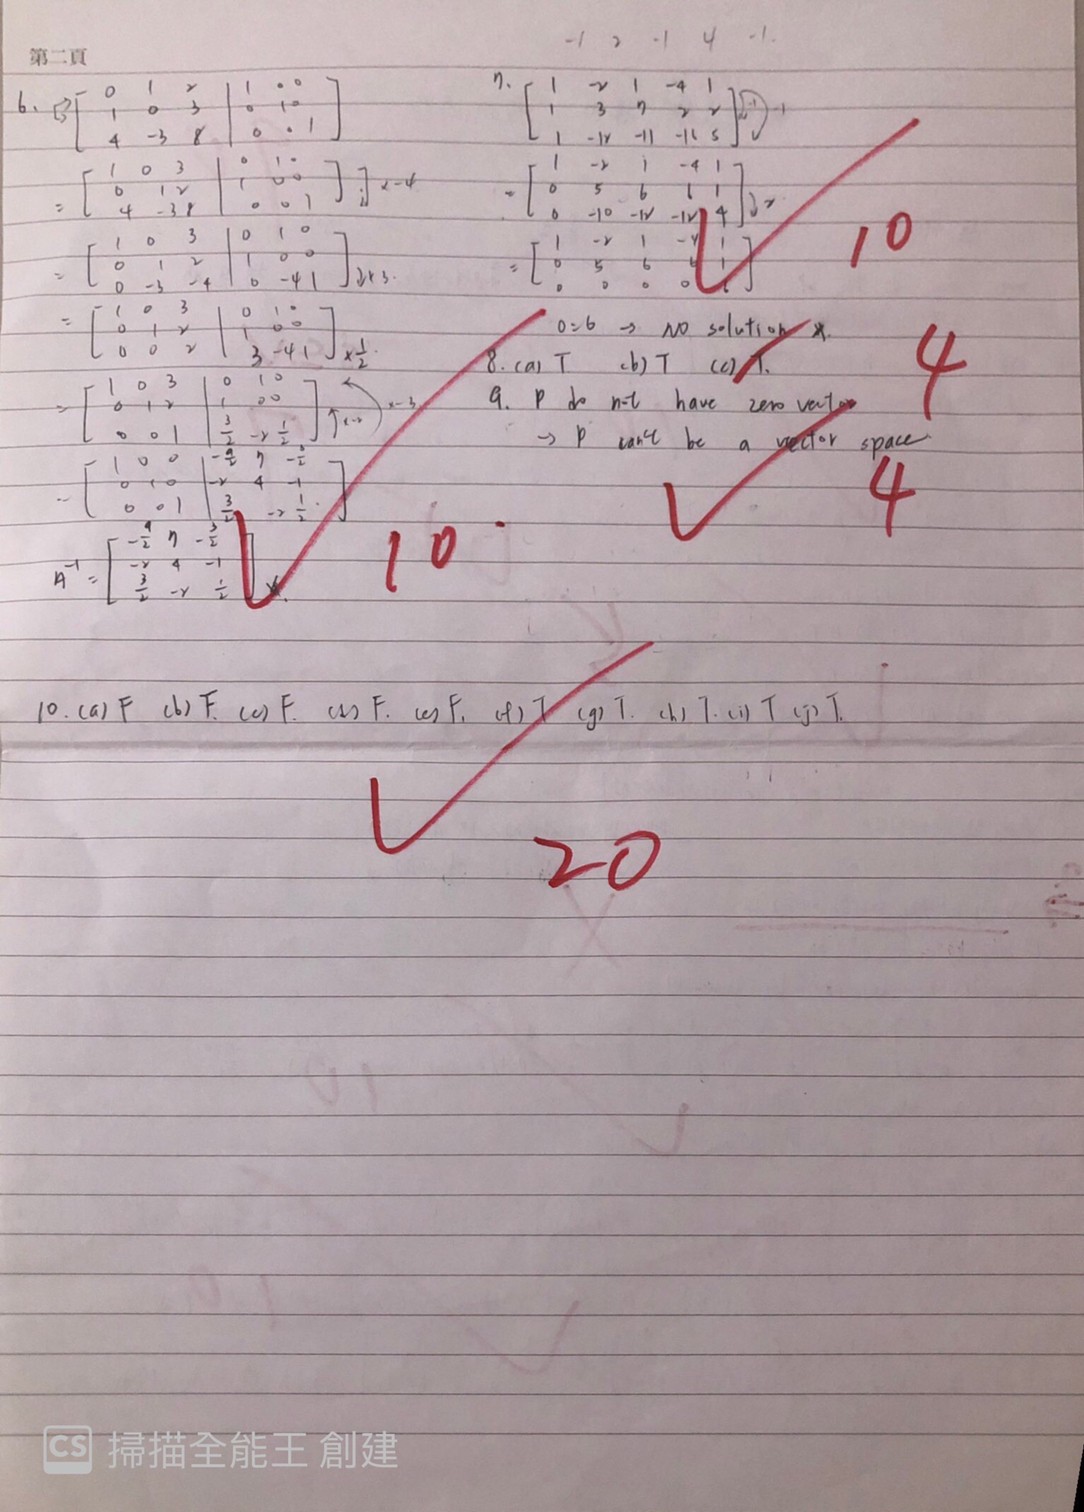 第二頁
-1 2 -1 4 -1.
6. [ 0 1 2 | 1 0 0
1 0 3 | 0 1 0
4 -3 8 | 0 0 1 ]
= [ 1 0 3 | 0 1 0
0 1 2 | 1 0 0
4 -3 8 | 0 0 1 ] x-4
= [ 1 0 3 | 0 1 0
0 1 2 | 1 0 0
0 -3 -4 | 0 -4 1 ] x3.
= [ 1 0 3 | 0 1 0
0 1 2 | 1 0 0
0 0 2 | 3 -4 1 ] x1/2.
= [ 1 0 3 | 0 1 0
0 1 2 | 1 0 0
0 0 1 | 3/2 -2 1/2 ] x-2 x-3
[ 1 0 0 | -9/2 7 -3/2
0 1 0 | -2 4 -1
0 0 1 | 3/2 -2 1/2 ]
A⁻¹ = [ -9/2 7 -3/2
-2 4 -1
3/2 -2 1/2 ]
10
7. [ 1 -2 1 -4 1
1 3 7 2 2
1 -12 -11 -16 5 ] -1
= [ 1 -2 1 -4 1
0 5 6 6 1
0 -10 -12 -12 4 ] 2
= [ 1 -2 1 -4 1
0 5 6 6 1
0 0 0 0 ]
10
0=6 → NO solution
8. (a) T (b) T (c) T.
4
9. P do not have zero vector
→ P can't be a vector space.
4
10. (a) F (b) F. (c) F. (d) F. (e) F. (f) T (g) T. (h) T. (i) T (j) T.
20
CS 掃描全能王 創建